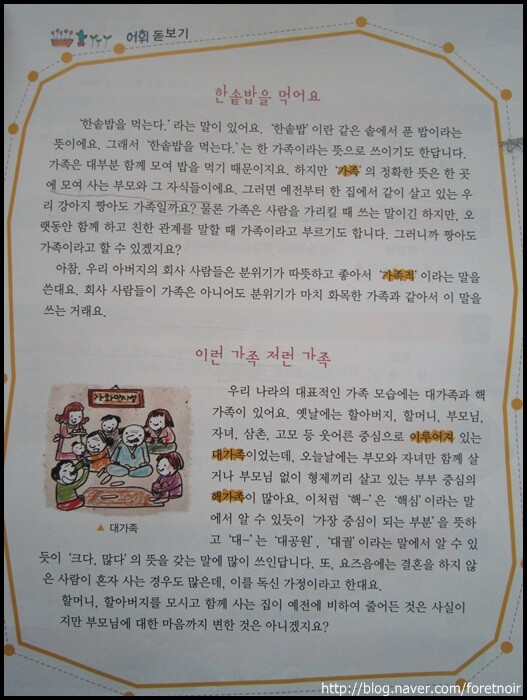 어휘 돋보기
한솥밥을 먹어요
'한솥밥을 먹는다.' 라는 말이 있어요. '한솥밥' 이란 같은 솥에서 푼 밥이라는
뜻이에요. 그래서 '한솥밥을 먹는다.' 는 한 가족이라는 뜻으로 쓰이기도 한답니다.
가족은 대부분 함께 모여 밥을 먹기 때문이지요. 하지만 '가족' 의 정확한 뜻은 한 곳
에 모여 사는 부모와 그 자식들이에요. 그러면 예전부터 한 집에서 같이 살고 있는 우
리 강아지 짱아도 가족일까요? 물론 가족은 사람을 가리킬 때 쓰는 말이긴 하지만, 오
랫동안 함께 하고 친한 관계를 말할 때 가족이라고 부르기도 합니다. 그러니까 짱아도
가족이라고 할 수 있겠지요?
아참, 우리 아버지의 회사 사람들은 분위기가 따뜻하고 좋아서 '가족적' 이라는 말을
쓴대요. 회사 사람들이 가족은 아니어도 분위기가 마치 화목한 가족과 같아서 이 말을
쓰는 거래요.
이런 가족 저런 가족
우리 나라의 대표적인 가족 모습에는 대가족과 핵
가족이 있어요. 옛날에는 할아버지, 할머니, 부모님,
자녀, 삼촌, 고모 등 웃어른 중심으로 이루어져 있는
대가족이었는데, 오늘날에는 부모와 자녀만 함께 살
거나 부모님 없이 형제끼리 살고 있는 부부 중심의
핵가족이 많아요. 이처럼 '핵-' 은 '핵심' 이라는 말
에서 알 수 있듯이 '가장 중심이 되는 부분' 을 뜻하
고 '대-' 는 '대공원', '대궐' 이라는 말에서 알 수 있
듯이 '크다, 많다' 의 뜻을 갖는 말에 많이 쓰인답니다. 또, 요즈음에는 결혼을 하지 않
은 사람이 혼자 사는 경우도 많은데, 이를 독신 가정이라고 한대요.
할머니, 할아버지를 모시고 함께 사는 집이 예전에 비하여 줄어든 것은 사실이
지만 부모님에 대한 마음까지 변한 것은 아니겠지요?
가화만사성
▲ 대가족
http://blog.naver.com/foretnoir